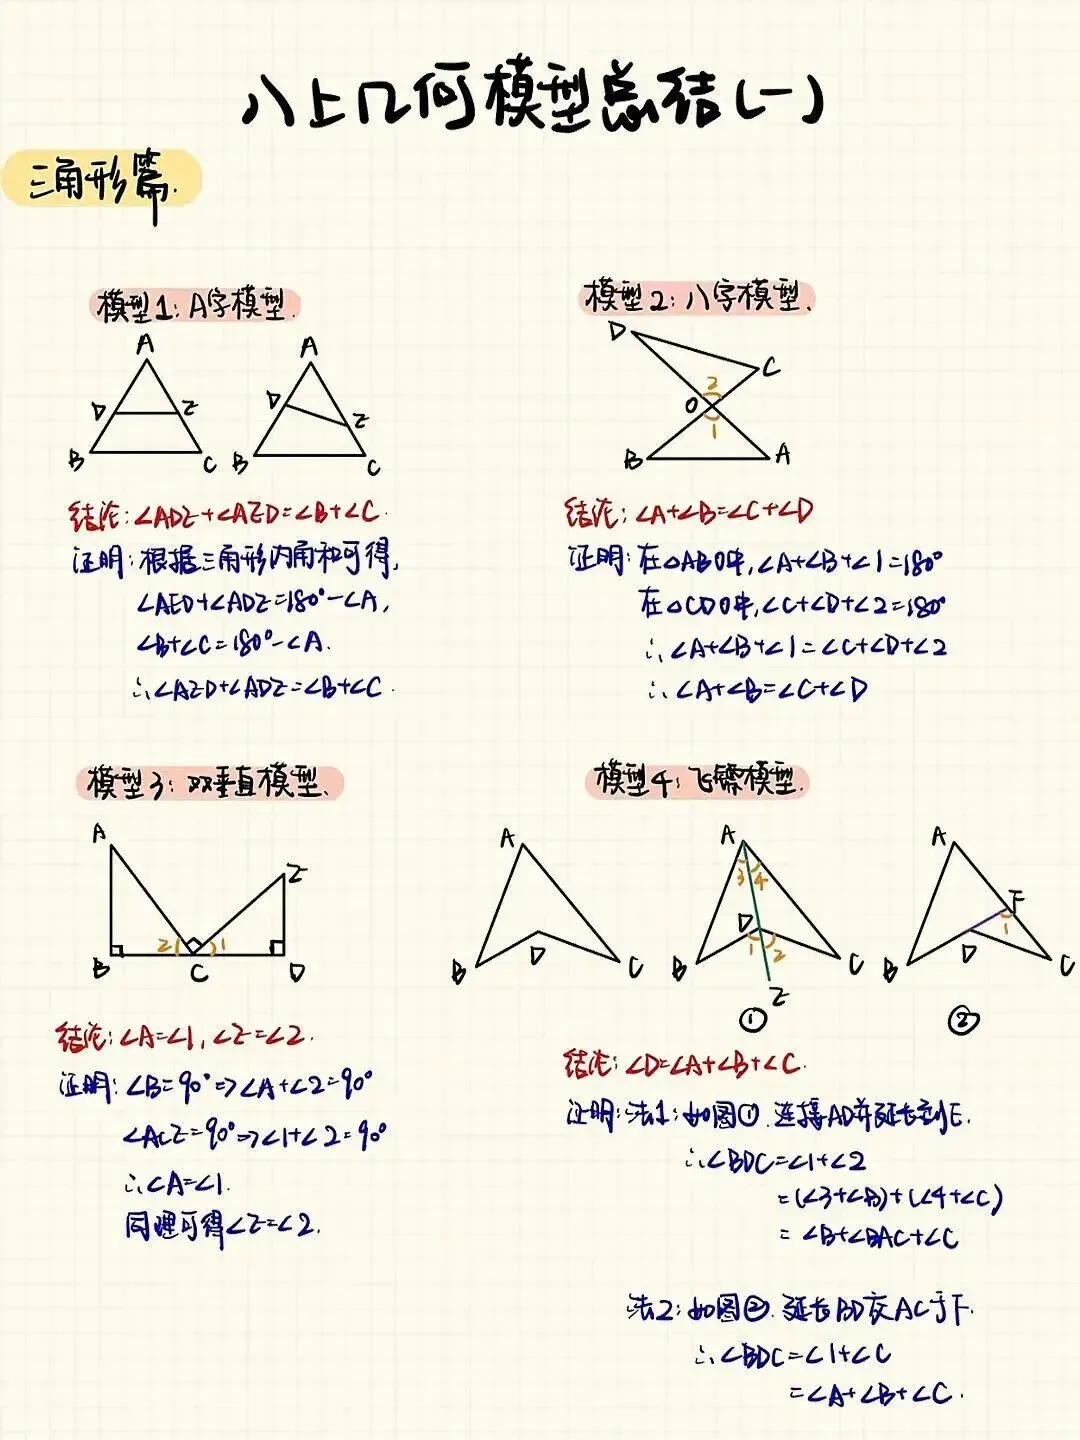 八上几何模型总结(一)
三角形篇.
模型1:A字模型.
A
D E
B C
A
D E
B C
结论:∠ADE+∠AED=∠B+∠C.
证明:根据三角形内角和可得,
∠AED+∠ADE=180°-∠A,
∠B+∠C=180°-∠A.
∴∠AED+∠ADE=∠B+∠C.
模型2:八字模型.
D
C
2
O
1
B A
结论:∠A+∠B=∠C+∠D
证明:在△ABO中,∠A+∠B+∠1=180°
在△CDO中,∠C+∠D+∠2=180°
∴∠A+∠B+∠1=∠C+∠D+∠2
∴∠A+∠B=∠C+∠D
模型3:双垂直模型.
A
E
2 1
B C D
结论:∠A=∠1,∠E=∠2.
证明:∠B=90°=>∠A+∠2=90°
∠ACE=90°=>∠1+∠2=90°
∴∠A=∠1.
同理可得∠E=∠2.
模型4:飞镖模型.
A
B D C
A
3 4
D
1 2
B C
E
①
A
F
1
B D C
②
结论:∠D=∠A+∠B+∠C.
证明:法1:如图①.连接AD并延长到E.
∴∠BDC=∠1+∠2
=(∠3+∠B)+(∠4+∠C)
=∠B+∠BAC+∠C
法2:如图②.延长BD交AC于F.
∴∠BDC=∠1+∠C
=∠A+∠B+∠C.